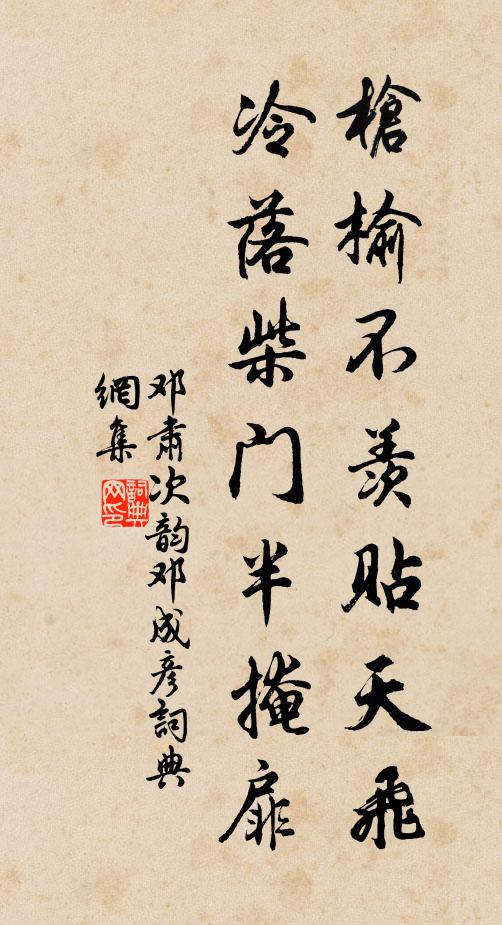 槍榆不羨貼天飛
冷落柴门半掩扉
邓肅次韵邓成彥詞典
網集
詞典网印